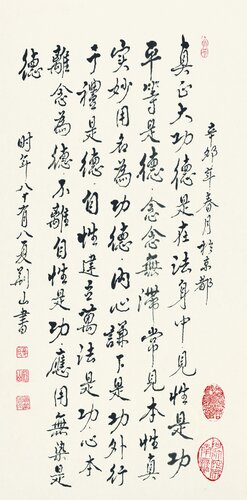 辛卯年春月於京都
真正大功德是在法身中見性是功
平等是德念念無滯常見本性真
实妙用名為功德内心謙下是功外行
于禮是德自性建立萬法是功心本
離念為德不離自性是功應用無染是
德
时年八十有八夏荆山書